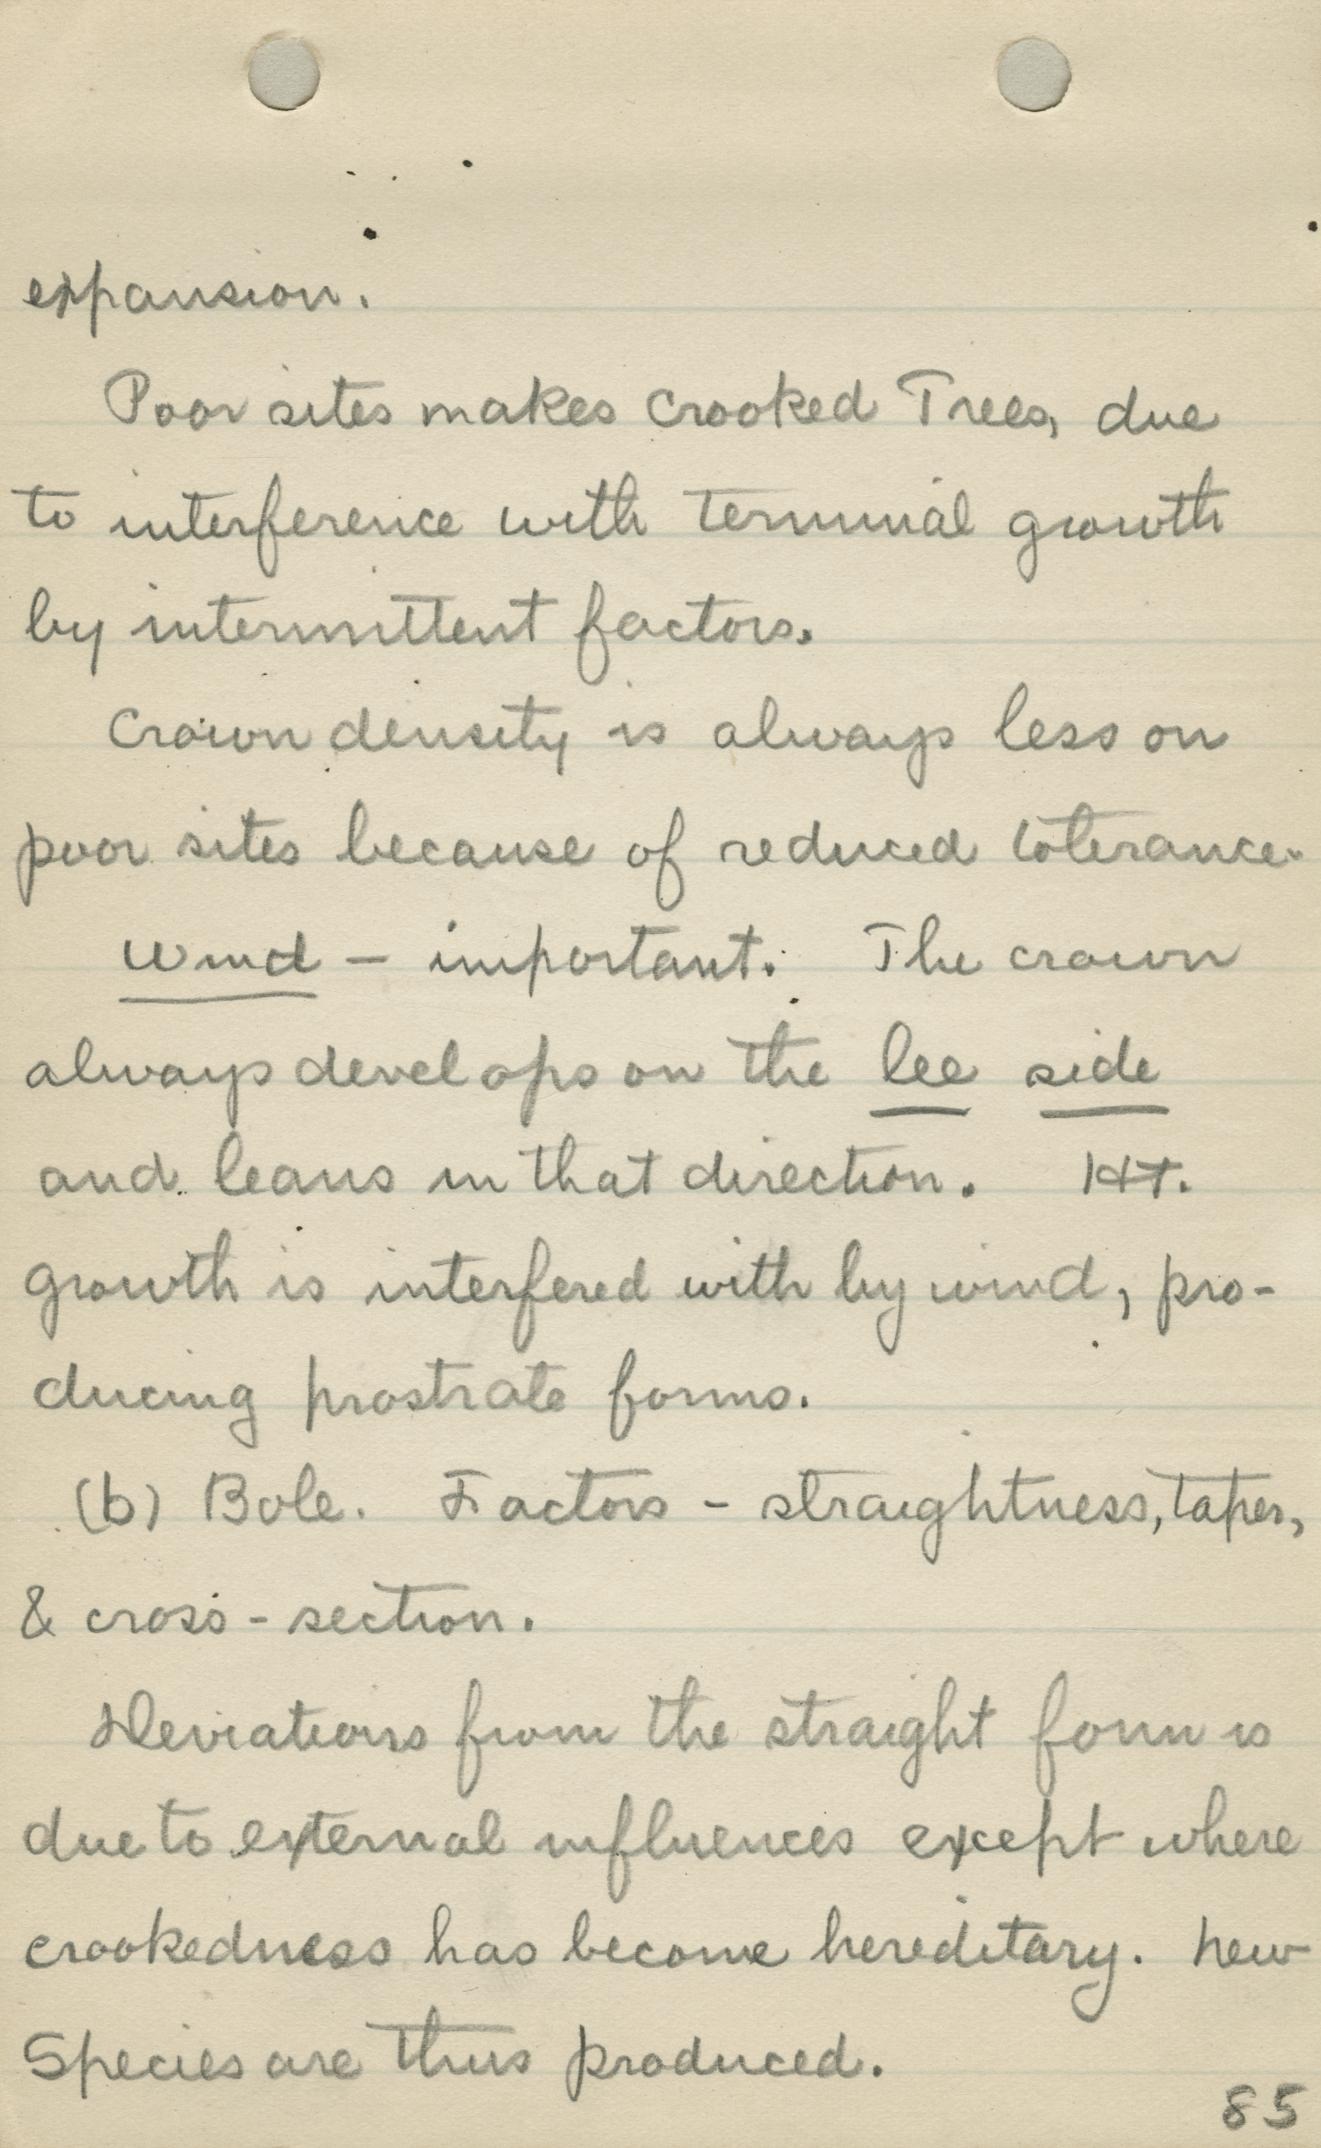 expansion.
Poor sites makes crooked Trees, due
to interference with terminal growth
by intermittent factors.
Crown density is always less on
poor sites because of reduced tolerance.
Wind - important. The crown
always develops on the lee side
and leans in that direction. Ht.
growth is interfered with by wind, pro-
ducing prostrate forms.
(b) Bole. Factors - straightness, taper,
& cross-section.
Deviations from the straight form is
due to external influences except where
crookedness has become hereditary. New
Species are thus produced.
85